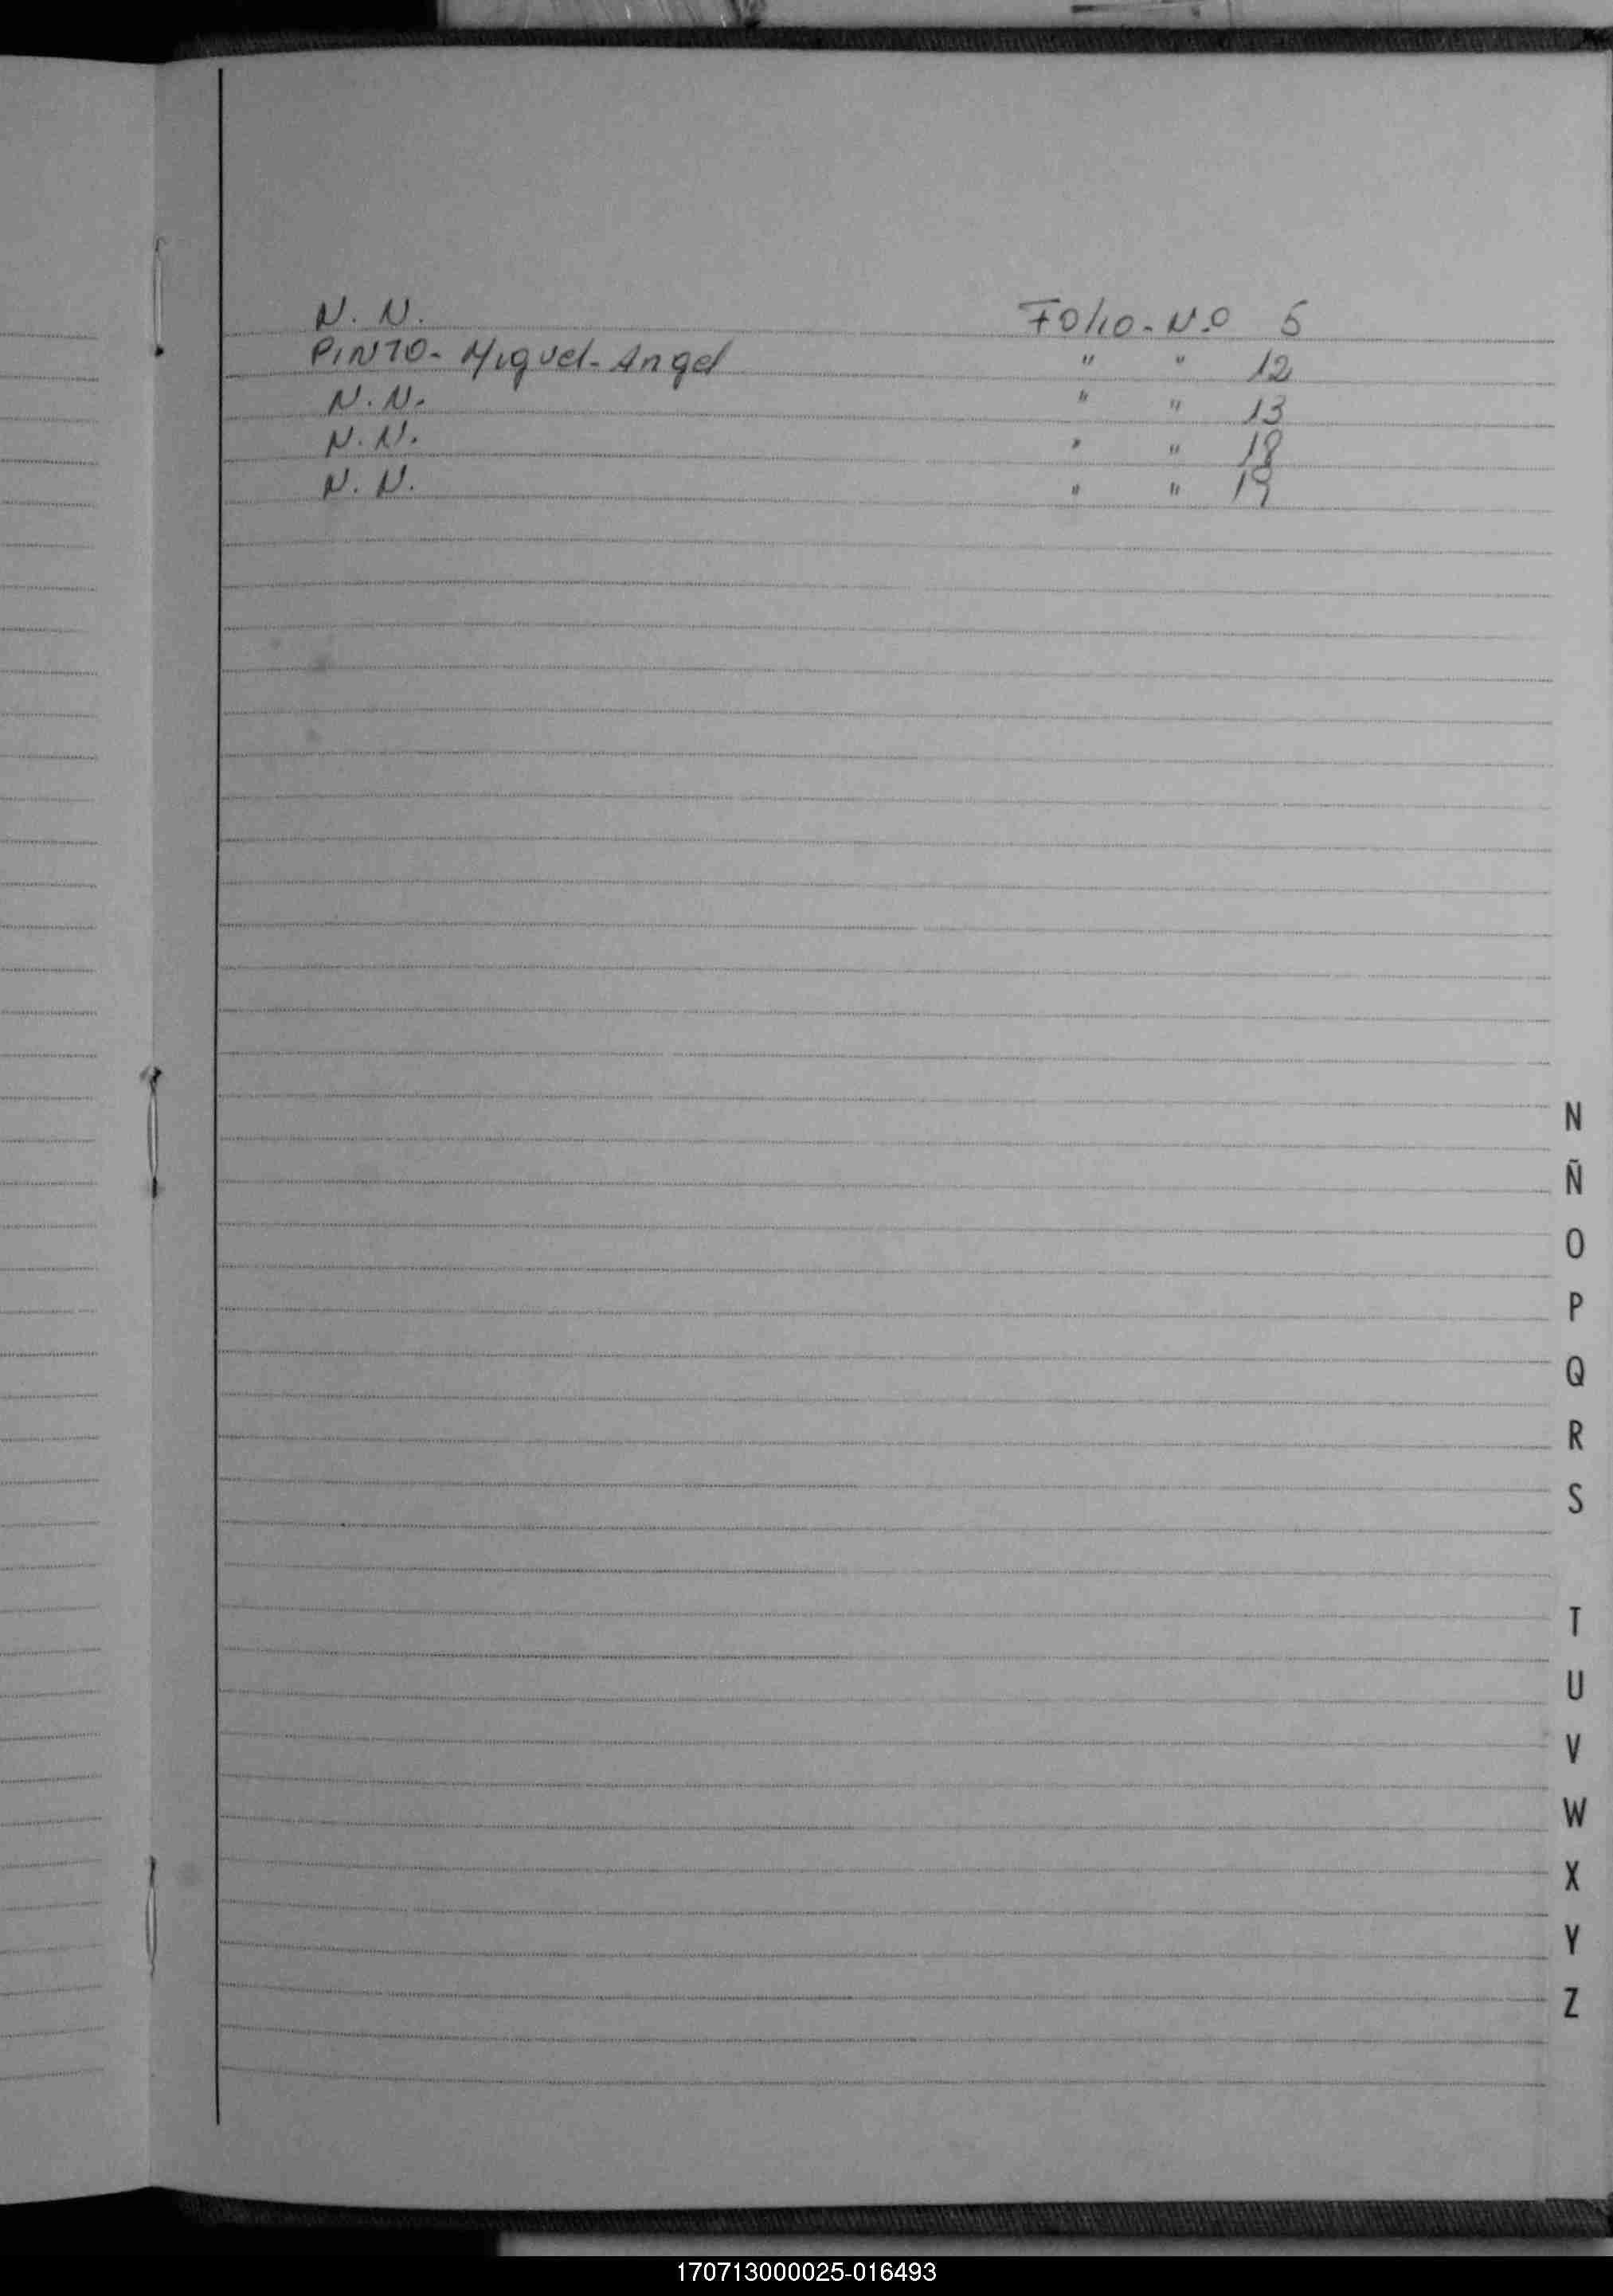 N. N. Folio - N.o 5
PINTO - Miguel - Angel " " 12
N. N. " " 13
N. N. " " 18
N. N. " " 19
N
Ñ
O
P
Q
R
S
T
U
V
W
X
Y
Z
170713000025-016493